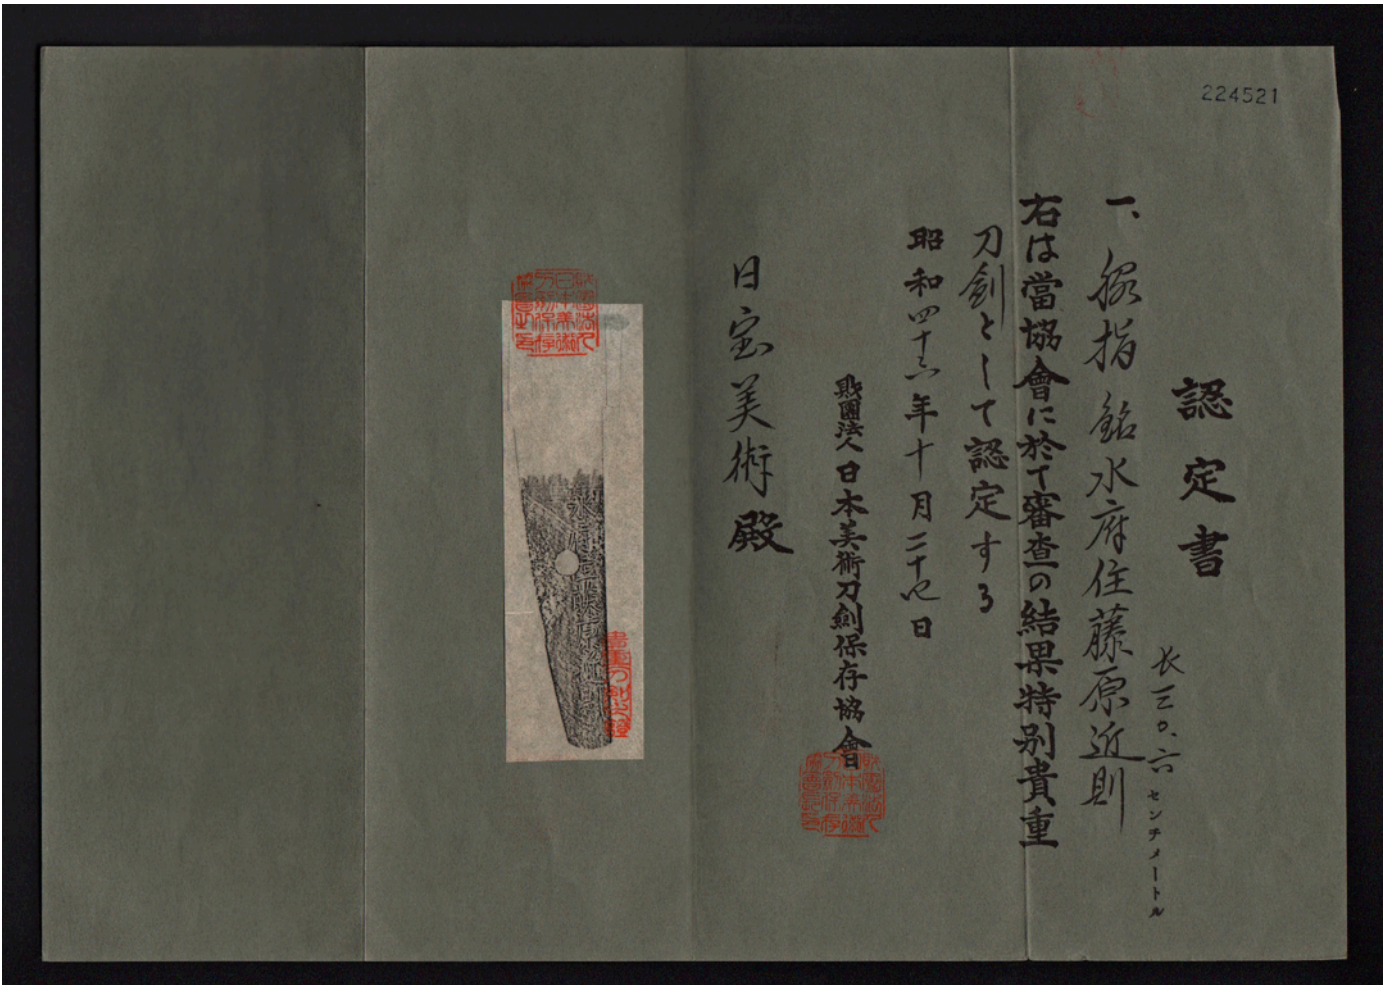 224521
認定書
一、脇指 銘 水府住藤原近則
長 三〇.六センチメートル
右は當協會に於て審査の結果特別貴重
刀劍として認定する
昭和四十六年十月二十七日
財團法人日本美術刀劍保存協會
日宝美術殿
財團法人日本美術刀劍保存協會之印
貴重刀剣之證